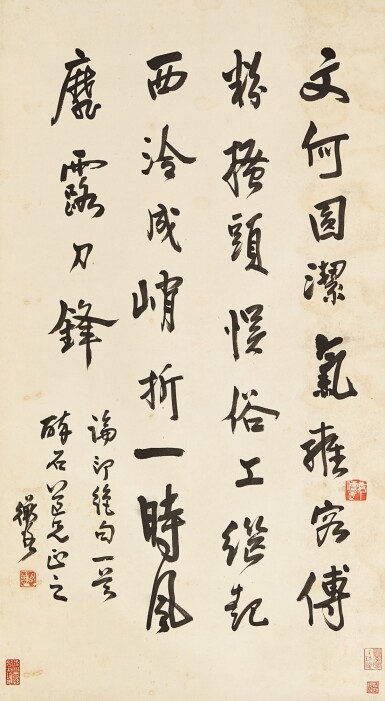 文何圓潔氣雍容傅
粉搔頭悞俗工繼起
西泠成峭折一時風
靡露刀鋒
論印絕句一首
醉石道兄正之